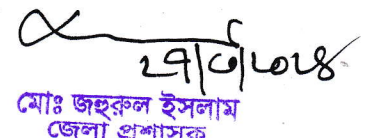 ২৭|৩|২০২৪
মোঃ জহুরুল ইসলাম
জেলা প্রশাসক